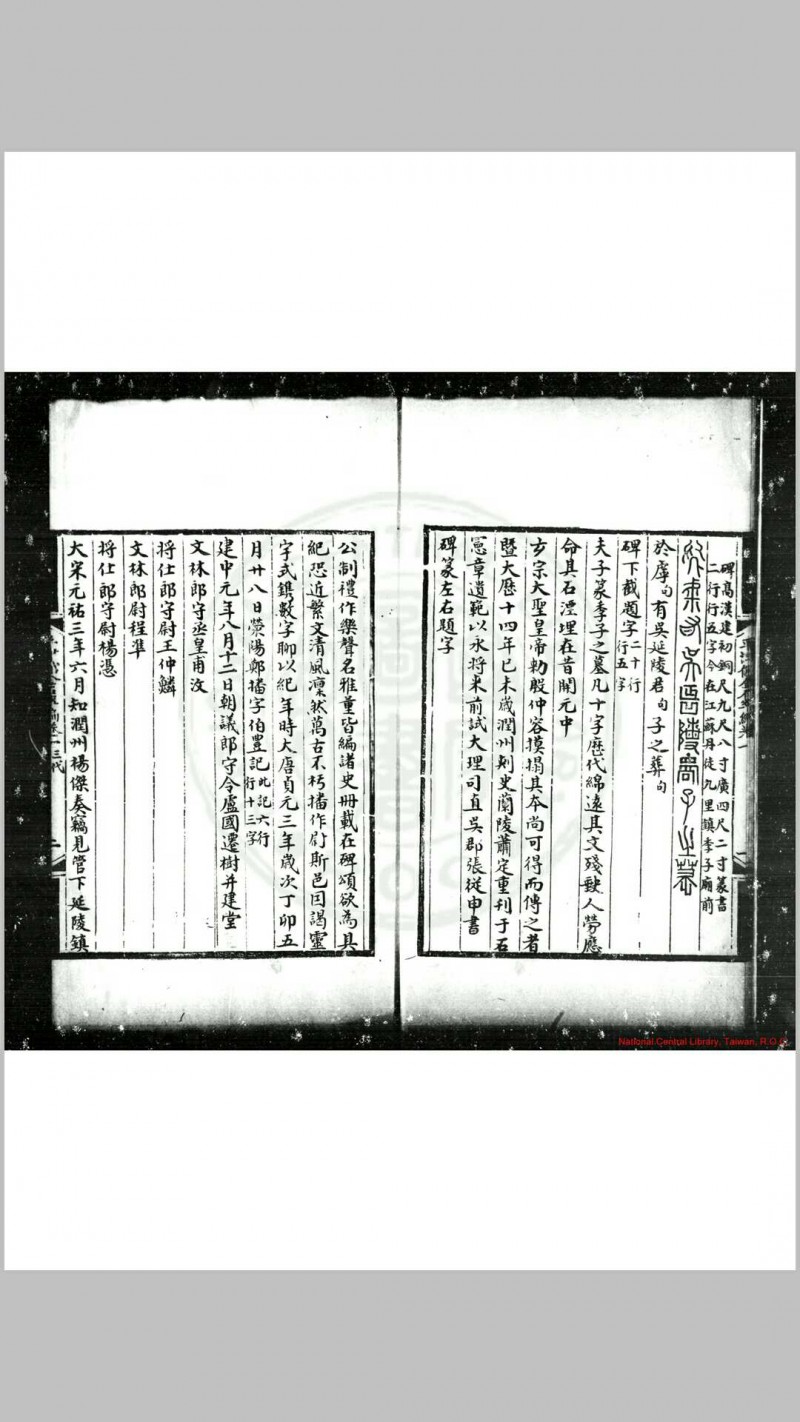 碑高漢建初銅尺九尺八寸廣四尺二寸篆書
二行行五字今在江蘇丹徒九里鎮季子廟前
於虖句有吳延陵君句子之葬句
碑下截題字二十行
行五字
夫子篆季子之墓凡十字歷代綿遠其文殘缺人勞應
命其石湮埋在昔開元中
玄宗大聖皇帝勅殷仲容摸搨其本尚可得而傳之者
暨大歷十四年已未歲潤州刺史蘭陵蕭定重刊于石
憲章遺範以永將來前試大理司直吳郡張從申書
碑篆左右題字
公制禮作樂聲名雅董皆編諸史冊載在碑頌欲為具
紀恐近繁文清風凜然萬古不朽播作尉斯邑因謁靈
字式鐫數字聊以紀年時大唐貞元三年歲次丁卯五
月廿八日滎陽鄭播字伯豊記此記六行
行十三字
建中元年八月十二日朝議郎守令盧國遷樹并建堂
文林郎守丞皇甫汶
將仕郎守尉王仲鱗
文林郎尉程準
將仕郎守尉楊憑
大宋元祐三年六月知潤州楊傑奏竊見管下延陵鎮
National Central Library, Taiwan, R.O.C